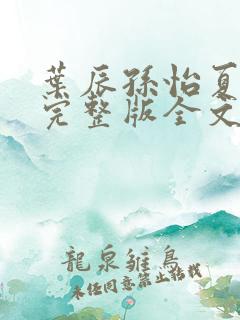 葉辰孫怡夏
完整版全文
龍泉雛鳥
未经同意禁止搭载